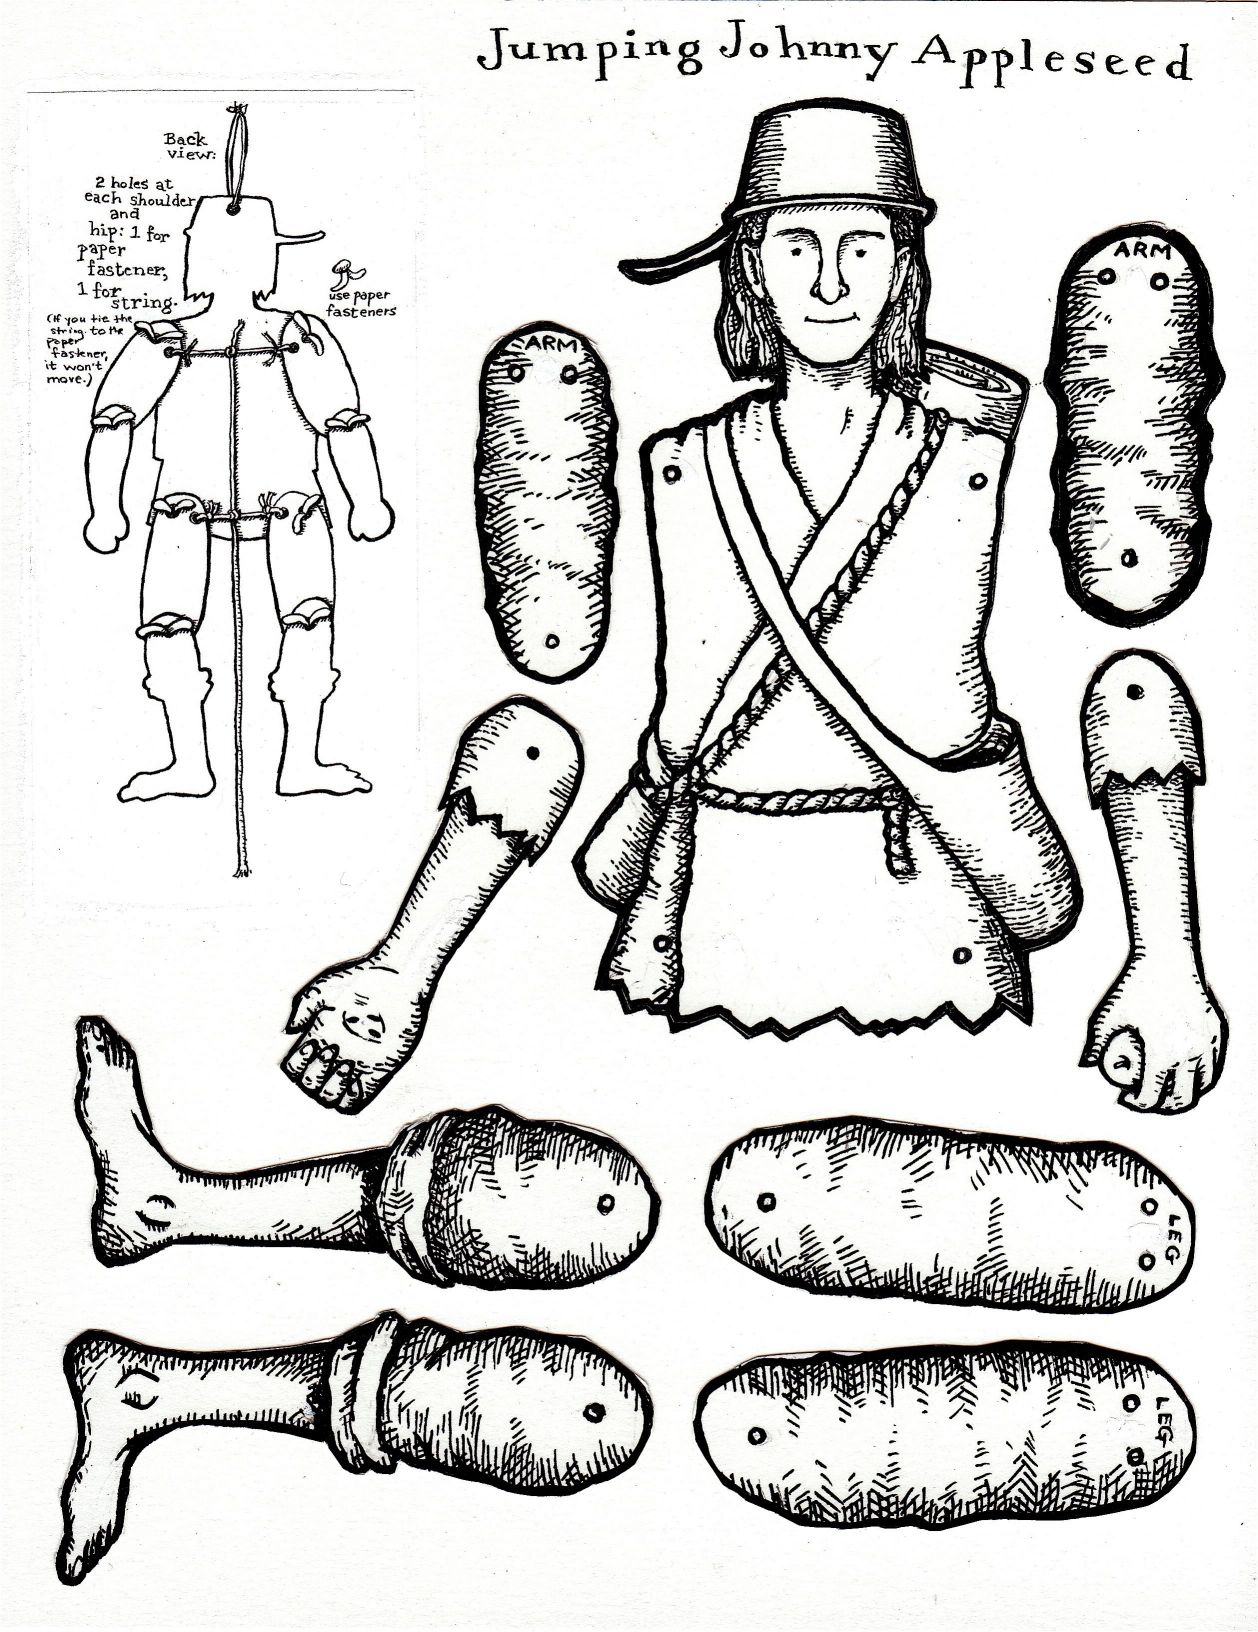 Jumping Johnny Appleseed
Back
view:
2 holes at
each shoulder
and
hip: 1 for
paper
fastener,
1 for
string.
(If you tie the
string to the
paper
fastener,
it won't
move.)
use paper
fasteners
ARM
ARM
LEG
LEG